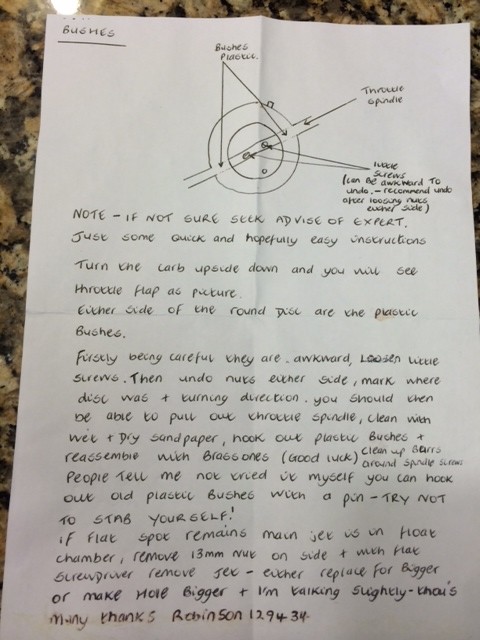 BUSHES
Bushes
Plastic.
Throttle
spindle
little
screws
(can be awkward to
undo. - recommend undo
after loosing nuts
either side)
NOTE - IF NOT SURE SEEK ADVISE OF EXPERT.
Just some quick and hopefully easy instructions
Turn the carb upside down and you will see
throttle flap as picture.
Either side of the round Disc are the plastic
Bushes.
Firstly being careful they are. awkward, Loosen little
screws. Then undo nuts either side, mark where
disc was + turning direction. you should then
be able to pull out throttle spindle, clean with
wet + Dry sandpaper, hook out plastic Bushes +
reassemble with Brass ones (Good luck) clean up Burrs
around spindle screws
People Tell me not tried it myself you can hook
out old plastic Bushes with a pin - TRY NOT
TO STAB YOURSELF!
if Flat spot remains main jet is in float
chamber, remove 13mm Nut on side + with flat
screwdriver remove Jet - either replace for Bigger
or make Hole Bigger + I'm talking slightly - thou's
Many thanks Robinson 1294 34.